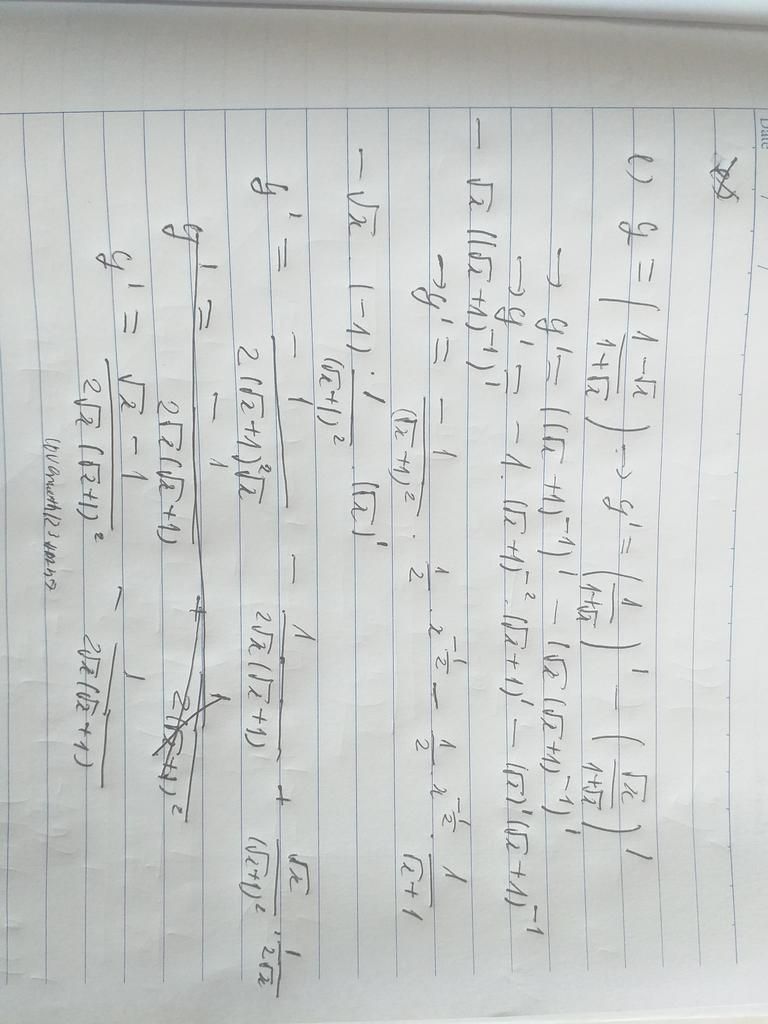 Date
l) y = (1-√x / 1+√x) → y' = (1 / 1+√x)' - (√x / 1+√x)'
→ y' = ((√x+1)^-1)' - (√x(√x+1)^-1)'
→ y' = -1.(√x+1)^-2.(√x+1)' - (√x)'(√x+1)^-1
- √x((√x+1)^-1)'
→ y' = -1 / (√x+1)^2 . 1/2 . x^-1/2 - 1/2 . x^-1/2 . 1 / √x+1
- √x . (-1) . 1 / (√x+1)^2 . (√x)'
y' = - 1 / 2(√x+1)^2√x - 1 / 2√x(√x+1) + √x / (√x+1)^2 . 1 / 2√x
y' = -1 / 2√x(√x+1) + 1 / 2(√x+1)^2
y' = √x-1 / 2√x(√x+1)^2 - 1 / 2√x(√x+1)